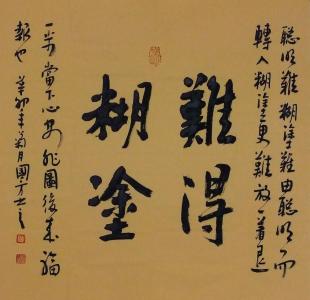 聰明難糊塗難由聰明而
轉入糊塗更難放一著退
難得
糊塗
一步當下心安非圖後來福
報也 辛卯年菊月國方士之